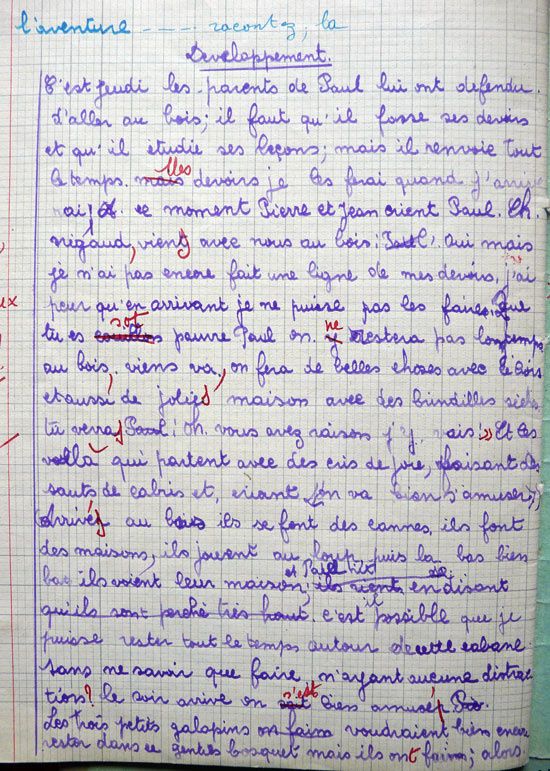 l'aventure ---- racontez; la
Developpement.
C'est jeudi les parents de Paul lui ont defendu
d'aller au bois; il faut qu'il fasse ses devoirs
et qu'il etudie ses leçons; mais il renvoie tout
le temps. mais Mes devoirs je les ferai quand j'arrive
rai; A ce moment Pierre et Jean crient Paul. Eh.
nigaud, viens avec nous au bois! Paul! Oui mais
je n'ai pas encore fait une ligne de mes devoirs, j'ai
peur qu'en arrivant je ne puisse pas les faire; Que
tu es sot pauvre Paul on. ne restera pas longtemps
au bois, viens va, on fera de belles choses avec le bois
et aussi de jolies maison avec des brindilles sèches
tu verras Paul! Oh. vous avez raison j'y vais! » Et les
voila qui partent avec des cris de joie, faisant des
sauts de cabris et, criant « on va bien s'amuser »
Arrivés au bois ils se font des cannes, ils font
des maisons, ils jouent au loup puis la bas bien
bas ils voient leur maison, et Paul rit ils rient en disant
qu'ils sont perché très haut. c'est il possible que je
puisse rester tout le temps autour de cette cabane
sans ne savoir que faire, n'ayant aucune distrac-
tion? le soir arrive on s'est bien amusé
Les trois petits galopins on faim voudraient bien encore
rester dans ce gentil bosquet mais ils ont faim; alors